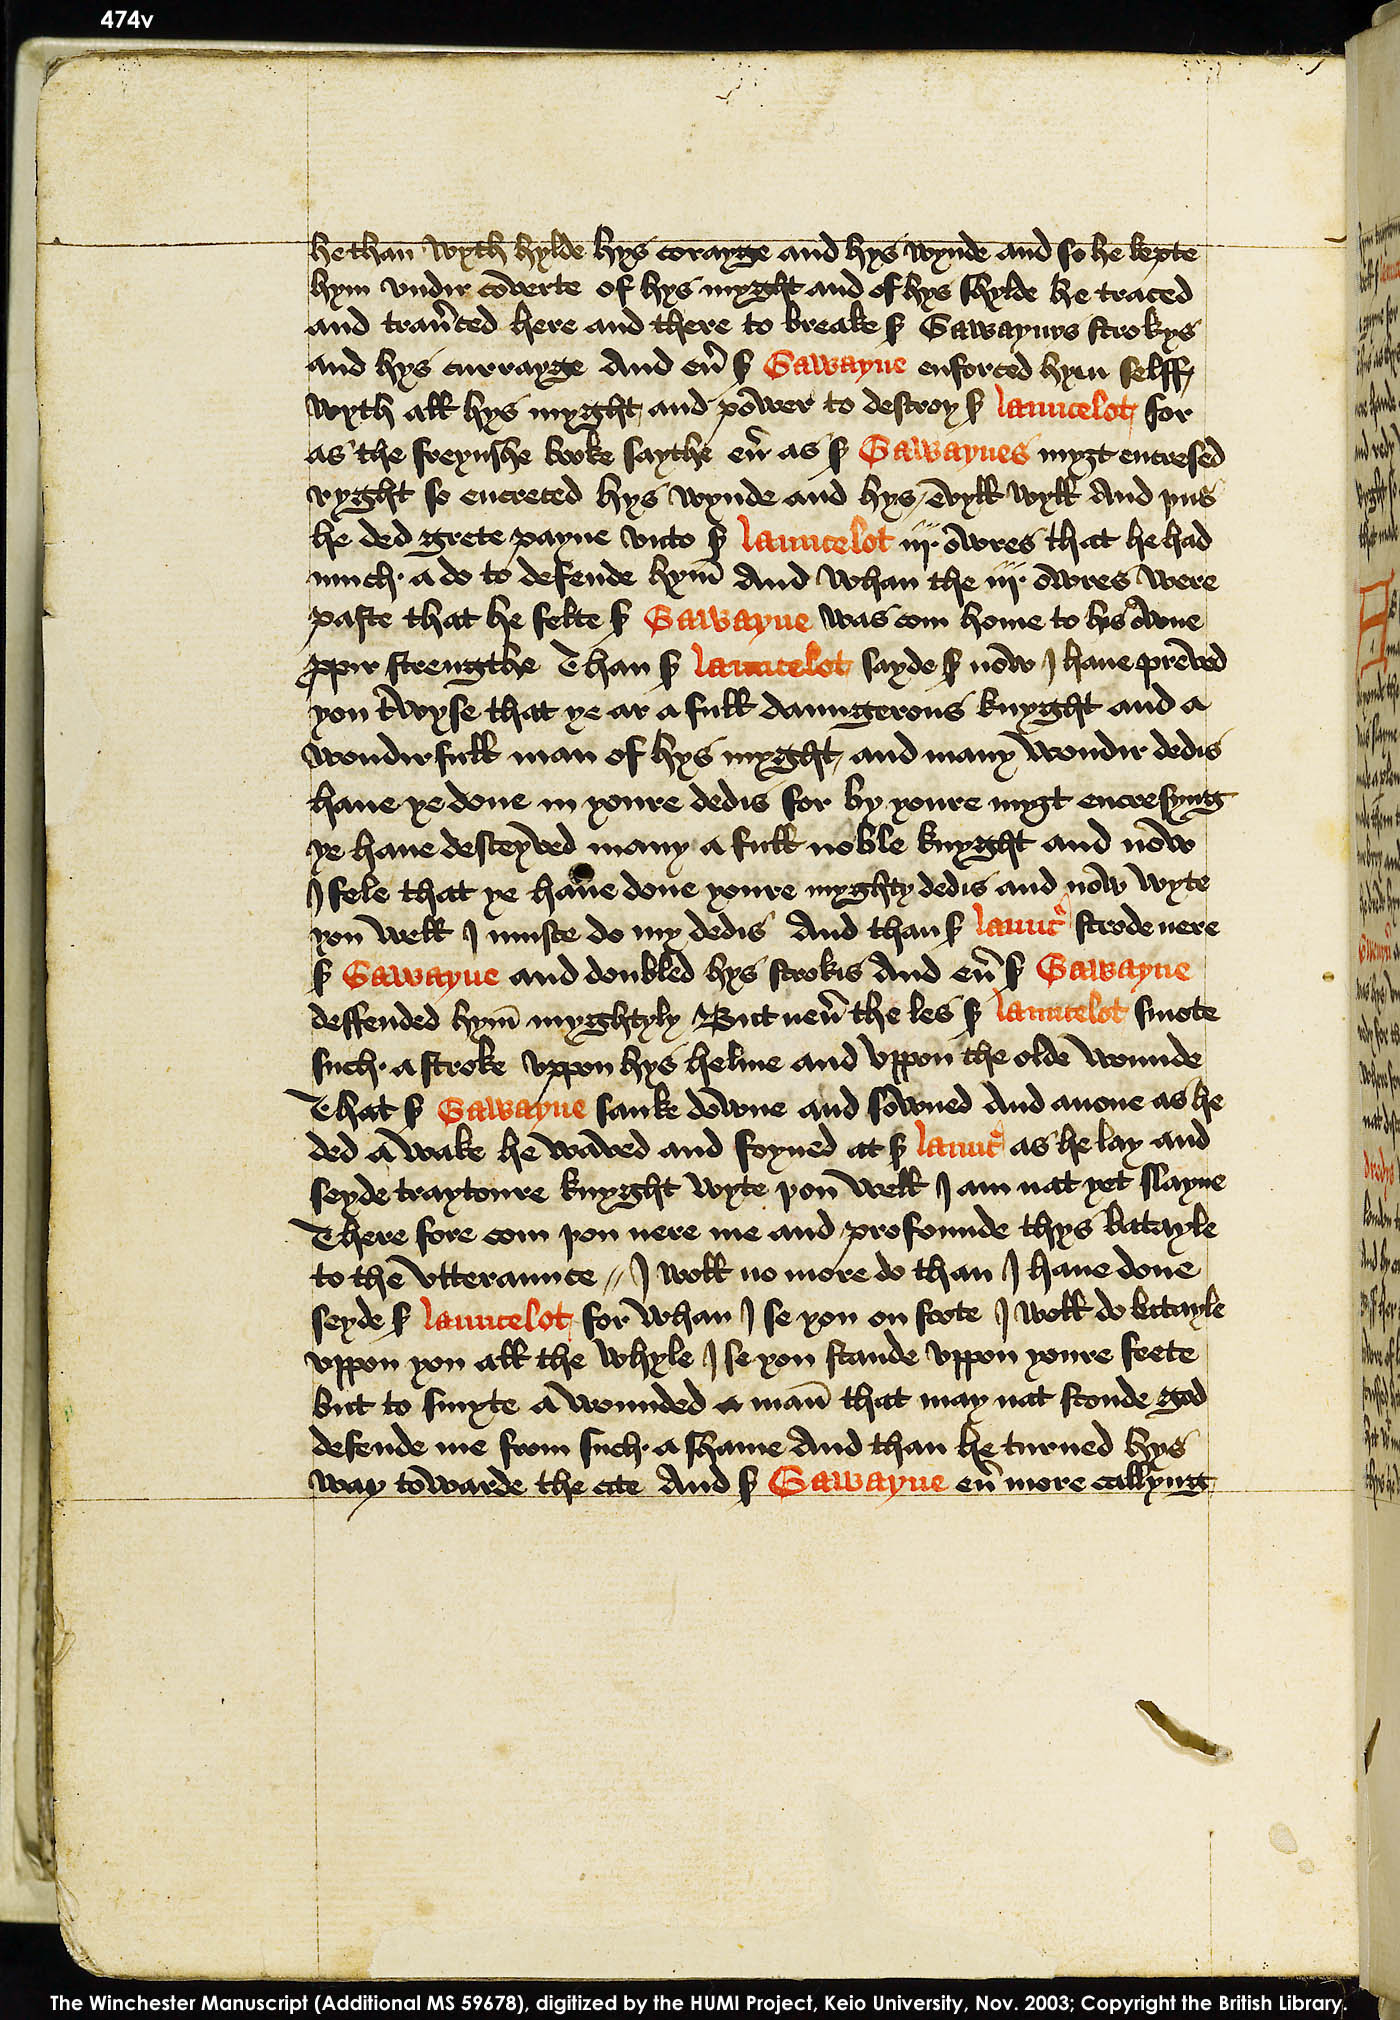 474v
he than wyth hylde hys corayge and hys wynde and so he kepte
hym vndir coverte of hys myght and of hys shylde he traced
and trau̅ced here and there to breake s̉ Gawaynys strokys
and hys currayge And eu̅ s̉ Gawayne enforced hym selff
wyth all hys myght and power to destroy s̉ launcelot for
as the freynshe booke saythe eu̅ as s̉ Gawaynes mygt encresed
ryght so encreced hys wynde and hys evyll wyll And þus
he ded grete payne vnto s̉ launcelot iij owres that he had
much a do to defende hym̅ And whan the iij owres were
paste that he felte s̉ Gawayne was com home to hys owne
ꝓpir strengthe Than s̉ launcelot sayde s̉ now I haue preved
you ij wyse that ye ar a full daungerous knyght and a
wondirfull man of hys myght and many wondir dedis
haue ye done in youre dedis for by youre mygt encresyng
ye haue desceyved many a full noble knyght and now
I fele that ye haue done youre myghty dedis and now wyte
you well I muste do my dedis And than s̉ launc̉ strode nere
s̉ Gawayne and doubled hys strokis And eu̅ s̉ Gawayne
deffended hym̅ myghtyly But neu̅ the les s̉ launcelot smote
such a stroke vppon hys helme and vppon the olde wounde
That s̉ Gawayne sanke downe and sowned And anone as he
ded a wake he waved and foyned at s̉ launc̉ as he lay and
seyde traytoure knyght wyte þou well I am nat yet slayne
There fore com þou nere me and profounde thys batayle
to the vtteraunce // I woll no more do than I haue done
seyde s̉ launcelot for whan I se you on foote I woll do batayle
vppon you all the whyle I se you stande vppon youre feete
but to smyte a wounded a man̅ that may nat stonde god
defende me from such a shame And than he turned hys
way towarde the cite And s̉ Gawayne eu̅ more callyng
The Winchester Manuscript (Additional MS 59678), digitized by the HUMI Project, Keio University, Nov. 2003; Copyright the British Library.